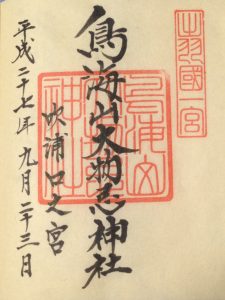 出羽國一宮
鳥海山大物忌神社
吹浦口之宮
平成二十七年九月二十三日